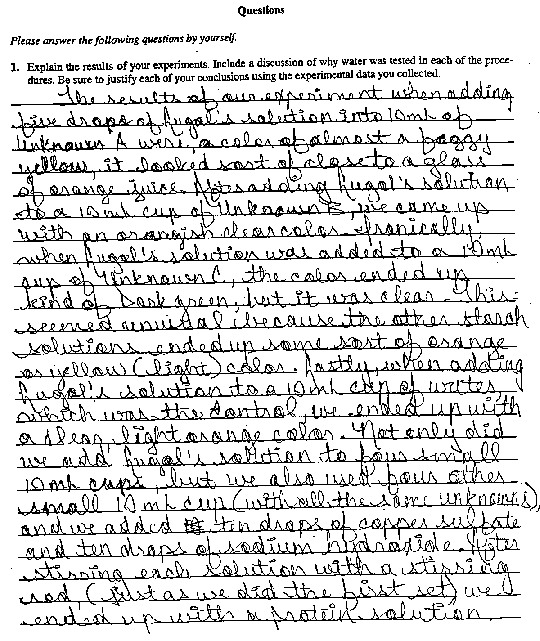 Questions
Please answer the following questions by yourself.
1. Explain the results of your experiments. Include a discussion of why water was tested in each of the proce-
dures. Be sure to justify each of your conclusions using the experimental data you collected.
The results of our experiment when adding
five drops of Lugol's solution into 10 mL of
Unknown A were, a color of almost a foggy
yellow, it looked sort of close to a glass
of orange juice. After adding Lugol's solution
to a 10 mL cup of Unknown B, we came up
with an orangish clear color. Ironically,
when Lugol's solution was added to a 10 mL
cup of Unknown C, the color ended up
kind of dark green, but it was clear. This
seemed unusual because the other starch
solutions ended up some sort of orange
or yellow (light) color. Lastly, when adding
Lugol's solution to a 10 mL cup of water,
which was the control, we ended up with
a clear, light orange color. Not only did
we add Lugol's solution to four small
10 mL cups, but we also used four other
small 10 mL cup (with all the same unknowns),
and we added ten drops of copper sulfate
and ten drops of sodium hydroxide. After
stirring each solution with a stirring
rod, (just as we did the first set) we
ended up with a protein solution.